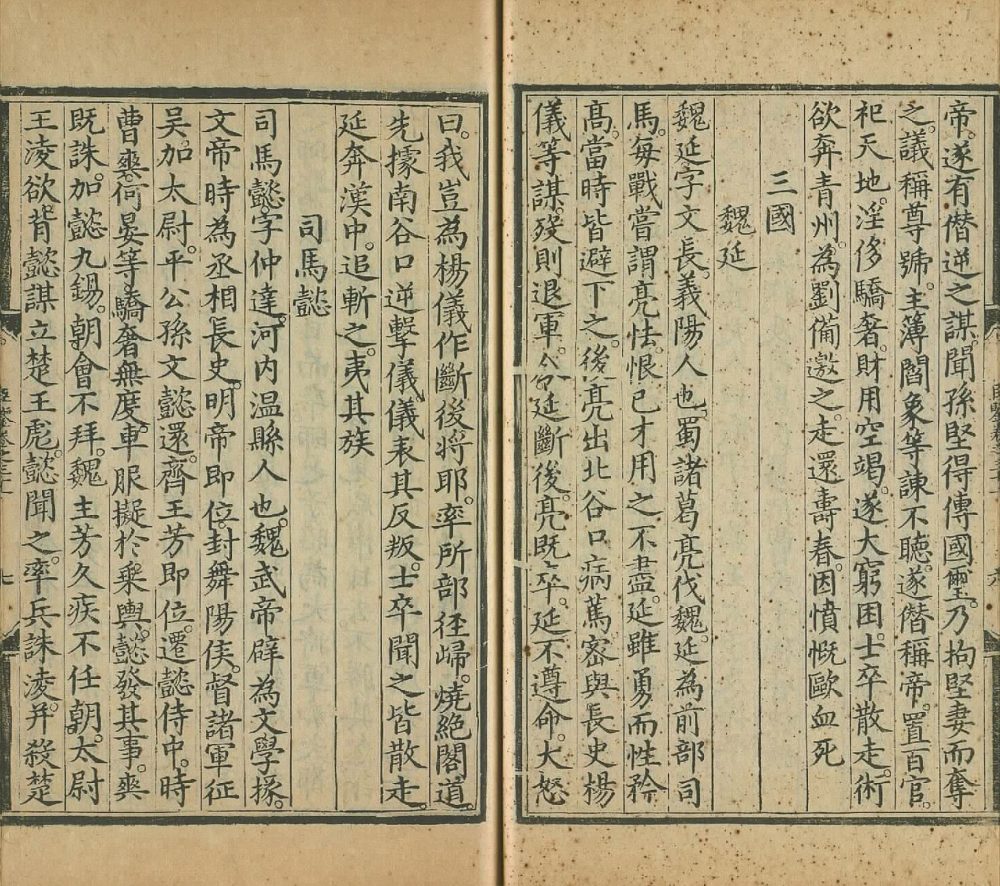 帝。遂有僭逆之謀。聞孫堅得傳國璽。乃拘堅妻而奪
之。議稱尊號。主簿閻象等諫不聽。遂僭稱帝。置百官。
祀天地。淫侈驕奢。財用空竭。遂大窮困。士卒散走。術
欲奔青州。為劉備邀之。走還壽春。因憤慨歐血死
三國
魏延
魏延字文長。義陽人也。蜀諸葛亮伐魏。延為前部司
馬。每戰嘗謂亮怯。恨已才用之不盡。延雖勇而性矜
高。當時皆避下之。後亮出北谷口。病篤。密與長史楊
儀等謀。歿則退軍。令延斷後。亮既卒。延不遵命。大怒
曰。我豈為楊儀作斷後將耶。率所部徑歸。燒絕閣道。
先據南谷口。逆擊儀。儀表其反叛。士卒聞之皆散走。
延奔漢中。追斬之。夷其族
司馬懿
司馬懿字仲達。河內温縣人也。魏武帝辟為文學掾。
文帝時為丞相長史。明帝即位。封舞陽侯。督諸軍征
吳。加太尉。平公孫文懿還。齊王芳即位。遷懿侍中。時
曹爽何晏等。驕奢無度。車服擬於乘輿。懿發其事。爽
既誅。加懿九錫。朝會不拜。魏主芳久疾不任朝。太尉
王淩欲背懿謀立楚王彪。懿聞之。率兵誅淩。并殺楚